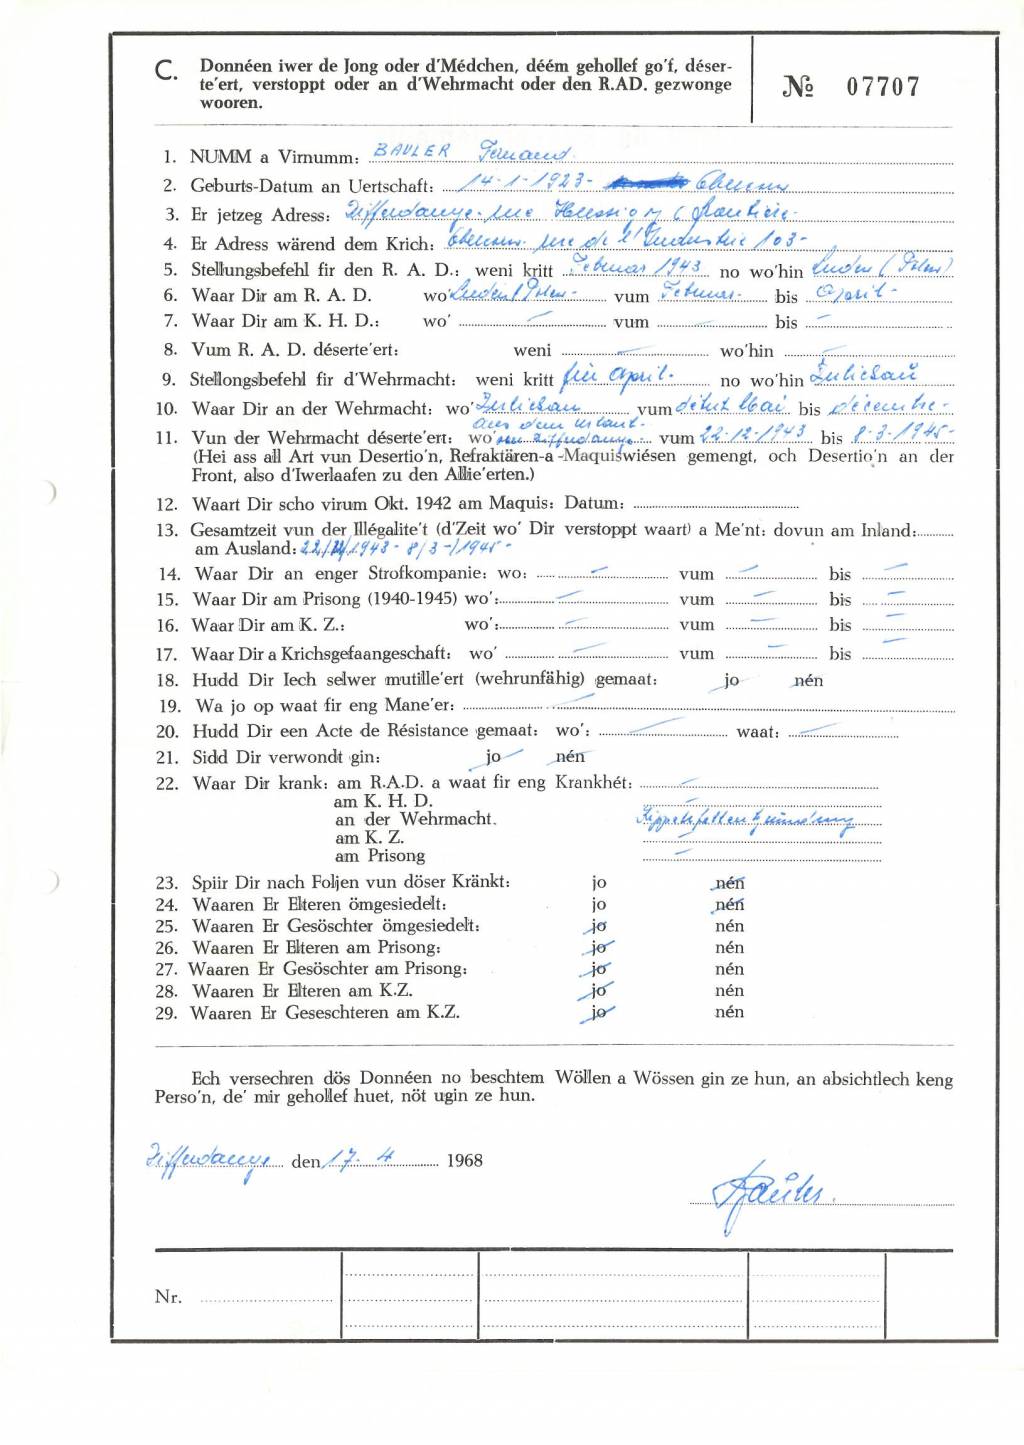 C. Donnéen iwer de Jong oder d'Médchen, déém gehollef go'f, déser-
te'ert, verstoppt oder an d'Wehrmacht oder den R.AD. gezwonge
wooren.
№ 07707
1. NUMM a Virnumm: BAULER Fernand
2. Geburts-Datum an Uertschaft: 14-1-1923-
3. Er jetzeg Adress: Differdange. rue
4. Er Adress wärend dem Krich: rue de l'Industrie 103-
5. Stellungsbefehl fir den R. A. D.: weni kritt Februar 1943 no wo'hin Luden (Polen)
6. Waar Dir am R. A. D. wo' Luden (Polen- vum Februar- bis April-
7. Waar Dir am K. H. D.: wo' — vum — bis —
8. Vum R. A. D. déserte'ert: weni — wo'hin —
9. Stellongsbefehl fir d'Wehrmacht: weni kritt für April. no wo'hin Züllichau
10. Waar Dir an der Wehrmacht: wo' Züllichau vum début Mai bis décembre-
aus dem Urlaub.
11. Vun der Wehrmacht déserte'ert: wo' Differdange- vum 22-12-1943 bis 8-3-1945-
(Hei ass all Art vun Desertio'n, Refraktären-a -Maquiswiésen gemengt, och Desertio'n an der
Front, also d'Iwerlaafen zu den Allie'erten.)
12. Waart Dir scho virum Okt. 1942 am Maquis: Datum:
13. Gesamtzeit vun der Illégalite't (d'Zeit wo' Dir verstoppt waart) a Me'nt: dovun am Inland:
am Ausland: 22/12/1943- 8/3-/1945-
14. Waar Dir an enger Strofkompanie: wo: — vum — bis —
15. Waar Dir am Prisong (1940-1945) wo': — vum — bis —
16. Waar Dir am K. Z.: wo': — vum — bis —
17. Waar Dir a Krichsgefaangeschaft: wo' — vum — bis —
18. Hudd Dir Iech selwer mutille'ert (wehrunfähig) gemaat: jo nén
19. Wa jo op waat fir eng Mane'er: —
20. Hudd Dir een Acte de Résistance gemaat: wo': — waat: —
21. Sidd Dir verwondt gin: jo nén
22. Waar Dir krank: am R.A.D. a waat fir eng Krankhét: —
am K. H. D. —
an der Wehrmacht. Rippenfellentzündung
am K. Z. —
am Prisong —
23. Spiir Dir nach Foljen vun döser Kränkt: jo nén
24. Waaren Er Elteren ömgesiedelt: jo nén
25. Waaren Er Gesöschter ömgesiedelt: jo nén
26. Waaren Er Elteren am Prisong: jo nén
27. Waaren Er Gesöschter am Prisong: jo nén
28. Waaren Er Elteren am K.Z. jo nén
29. Waaren Er Geseschteren am K.Z. jo nén
Ech versechren dös Donnéen no beschtem Wöllen a Wössen gin ze hun, an absichtlech keng
Perso'n, de' mir gehollef huet, nöt ugin ze hun.
Differdange den 17. 4 1968
Bauler.
Nr.